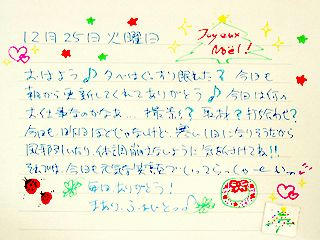 12月25日火曜日
Joyeux
Noël!
おはよう♪夕べはぐっすり眠れた?今日も
朝から更新してくれてありがとう♪今日は何の
お仕事なのかなぁ…撮影?取材?打ち合わせ?
今日も昨日ほどじゃないけど、寒い1日になりそうだから
風邪ひいたり、体調崩さないように気を付けてね!!
それでは、今日も元気な笑顔でいってらっしゃーい
毎日ありがとう!